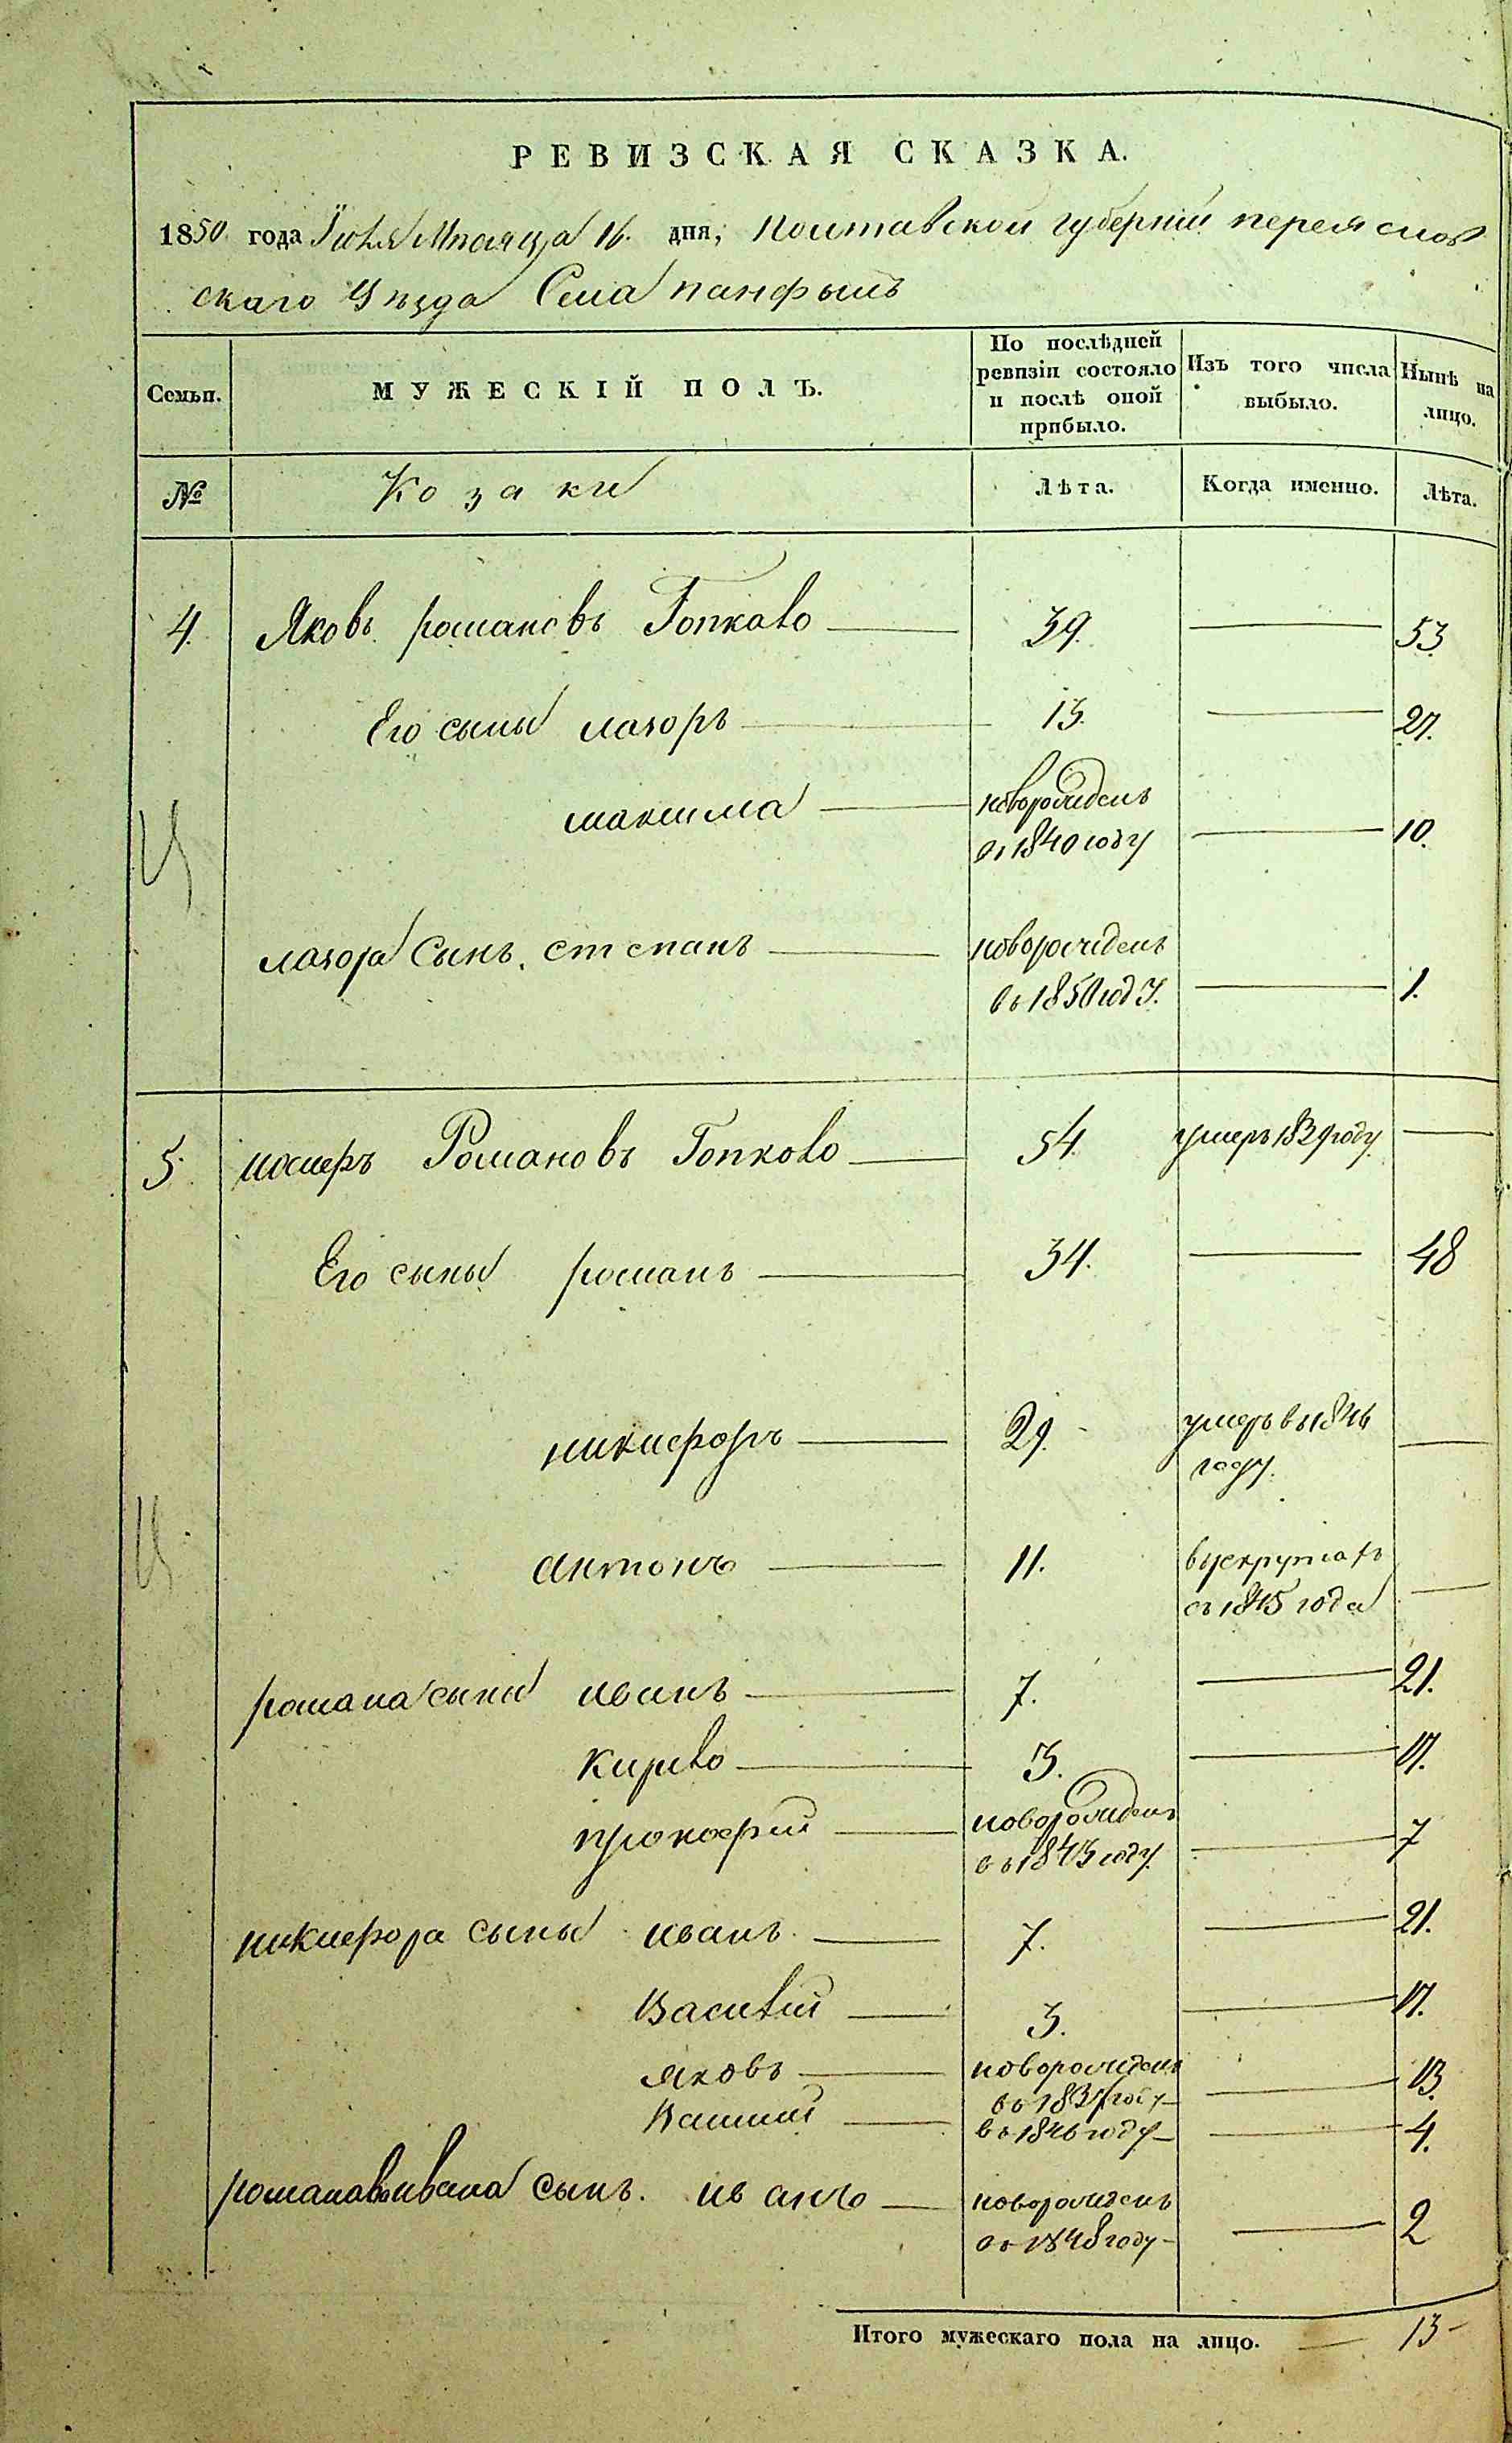 РЕВИЗСКАЯ СКАЗКА.
1850 года Июля Мпсяца 16. дня, Полтавской губернии переяслов
скаго Уъзда Села панфылъ
Семьи. МУЖЕСКІЙ ПОЛЪ. По послѣдней ревизіи состояло и послѣ оной прибыло. Изъ того числа выбыло. Нынѣ на лицо.
№ Козаки Лѣта. Когда именно. Лѣта.
4. Яковъ романовъ Гопкало 39. 53
Его сыны лазоръ 13. 27.
максима новорожденъ въ 1840 году 10.
лазора Сынъ. степанъ новорожденъ въ 1850 году. 1.
5. Романовъ Гопкало 54. умеръ 1839 году
Его сыны романъ 34. 48
никифоръ 29. умеръ въ 1846 году.
антонъ 11. врекрутахъ съ 1845 года
романа сыны иванъ 7. 21.
Кирило 3. 17.
прокофій новорожденъ въ 1843 году 7
никифора сыны иванъ. 7. 21.
Василій 3. 17.
яковъ новорожденъ въ 1837 году 13.
въ 1846 году 4.
сынъ. иванъ новорожденъ въ 1848 году 2
Итого мужескаго пола на лицо. 13